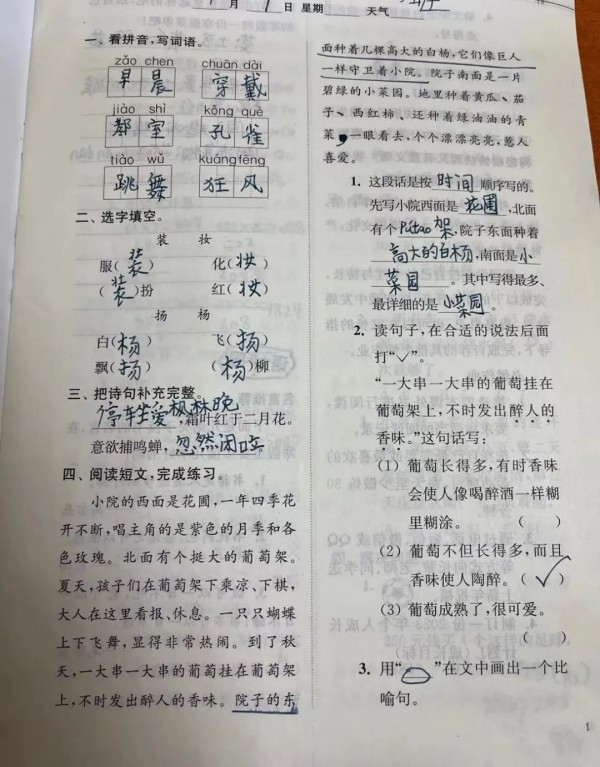 月 1 日 星期 天气
一、看拼音,写词语。
zǎo chen chuān dài
早晨 穿戴
jiào shì kǒng què
教室 孔雀
tiào wǔ kuáng fēng
跳舞 狂风
二、选字填空。
装 妆
服(装) 化(妆)
(装)扮 红(妆)
扬 杨
白(杨) 飞(扬)
飘(扬) (杨)柳
三、把诗句补充完整。
停车坐爱枫林晚,霜叶红于二月花。
意欲捕鸣蝉,忽然闭口。
四、阅读短文,完成练习。
小院的西面是花圃,一年四季花
开不断,唱主角的是紫色的月季和各
色玫瑰。北面有个挺大的葡萄架。
夏天,孩子们在葡萄架下乘凉、下棋,
大人在这里看报、休息。一只只蝴蝶
上下飞舞,显得非常热闹。到了秋
天,一大串一大串的葡萄挂在葡萄架
上,不时发出醉人的香味。院子的东
面种着几棵高大的白杨,它们像巨人
一样守卫着小院。院子南面是一片
碧绿的小菜园。地里种着黄瓜、茄
子、西红柿、还种着绿油油的青
菜,一眼看去,个个漂漂亮亮,惹人
喜爱。
1. 这段话是按时间顺序写的。
先写小院西面是花圃,北面
有个Pútao架,院子东面种着
高大的白杨,南面是小
菜园。其中写得最多、
最详细的是小菜园。
2. 读句子,在合适的说法后面
打“✓”。
“一大串一大串的葡萄挂在
葡萄架上,不时发出醉人的
香味。”这句话写:
(1) 葡萄长得多,有时香味
会使人像喝醉酒一样糊
里糊涂。 ( )
(2) 葡萄不但长得多,而且
香味使人陶醉。(✓)
(3) 葡萄成熟了,很可爱。
( )
3. 用“ ”在文中画出一个比
喻句。
1